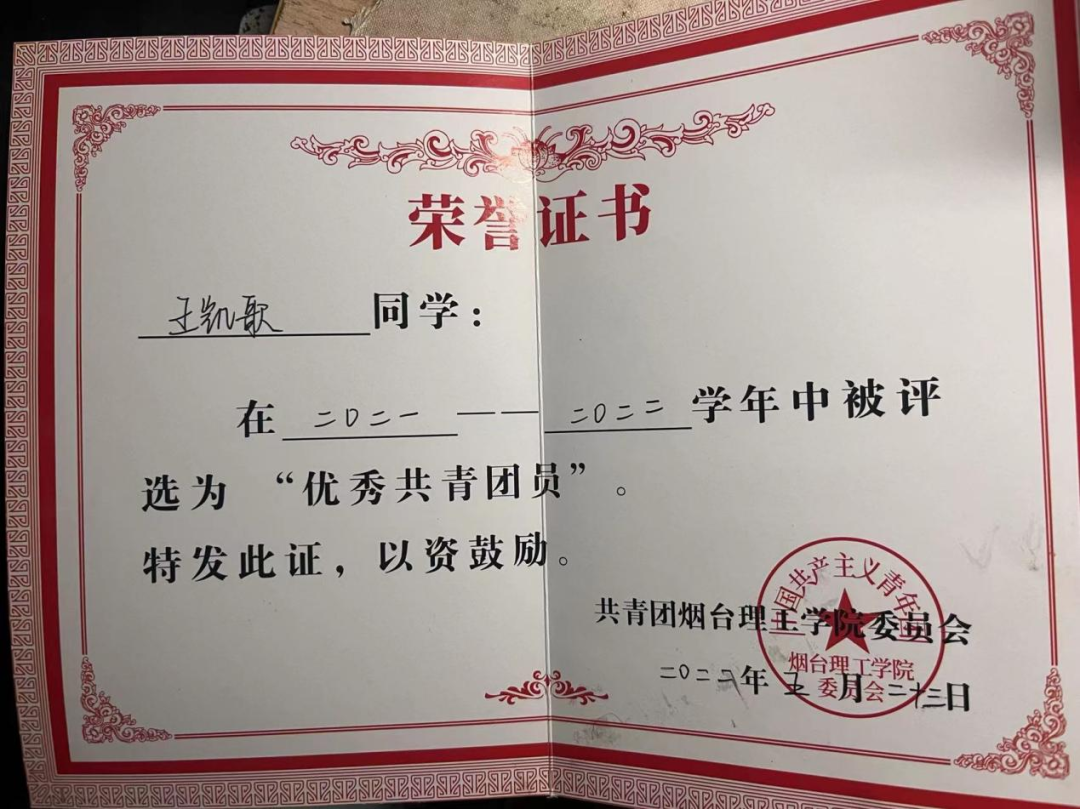 荣誉证书
王凯歌 同学：
在 二〇二一 —— 二〇二二 学年中被评
选为 “优秀共青团员”。
特发此证，以资鼓励。
共青团烟台理工学院委员会
二〇二二年五月二十三日
中国共产主义青年团
烟台理工学院
委员会